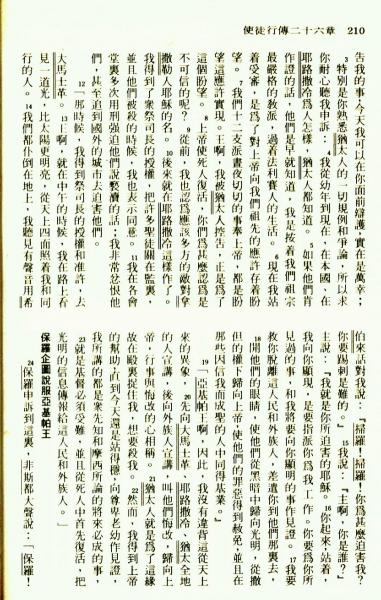 使徒行傳二十六章 210
告我的事,今天我可以在你面前辯護,實在是萬幸;
3特別是你熟悉猶太人的一切規例和爭論。所以求
你耐心聽我申訴。4我從幼年到現在,在本國,在
耶路撒冷爲人怎樣,猶太人都知道。5如果他們肯
作證的話,他們是早就知道,我是按着我們祖宗
最嚴格的教派,過着法利賽人的生活。6現在我站
着受審,是爲了對上帝向我們祖先的應許存着盼
望。7我們十二支派晝夜切切的事奉上帝,都是盼
望這應許實現。王啊,我被猶太人控告,正是爲了
這個盼望。8上帝使死人復活,你們爲甚麼認爲是
不可信的呢?9從前,我也認爲應該多方的敵對拿
撒勒人耶穌的名。10後來就在耶路撒冷這樣作了。
我得到了衆祭司長的授權,把許多聖徒關在監裏,
並且他們被殺的時候,我也表示同意。11我在各會
堂裏多次用刑强迫他們說褻瀆的話;我非常忿恨他
們,甚至追到國外的城市去迫害他們。
12「那時候,我得到祭司長的授權和准許,去
大馬士革。13王啊,就在中午的時候,我在路上看
見一道光,比太陽更明亮,從天上四面照着我和同
行的人。14我們都仆倒在地上,我聽見有聲音用希
伯來話對我說:『掃羅!掃羅!你爲甚麼迫害我?
你要踢刺是難的。』15我說:『主啊,你是誰?』
主說:『我就是你所迫害的耶穌。16你起來,站着,
我向你顯現,是要指派你爲我工作。你要爲你所
見過的事,和我將要向你顯明的事作見證。17我要
救你脫離這人民和外族人,差遣你到他們那裏去,
18開他們的眼睛,使他們從黑暗中歸向光明,從撒
但的權下歸向上帝,使他們的罪惡得到赦免,並且在
那些因信我而成聖的人中同得基業。』
19「亞基帕王啊,因此,我沒有違背這從天上
來的異象,20先向大馬士革、耶路撒冷、猶太全地
的人宣講,後向外族人宣講,叫他們悔改,歸向上
帝,行事與悔改的心相稱。21猶太人就是爲了這緣
故在殿裏捉住我,想要殺我。22然而,我得到上帝
的幫助,直到今天還是站得穩,向尊卑老幼作見證,
我所講的都是衆先知和摩西所論的將來必成的事,
23就是基督必須受難,並且從死人中首先復活,把
光明的信息傳報給這人民和外族人。」
保羅企圖說服亞基帕王
24保羅申訴到這裏,非斯都大聲說:「保羅!